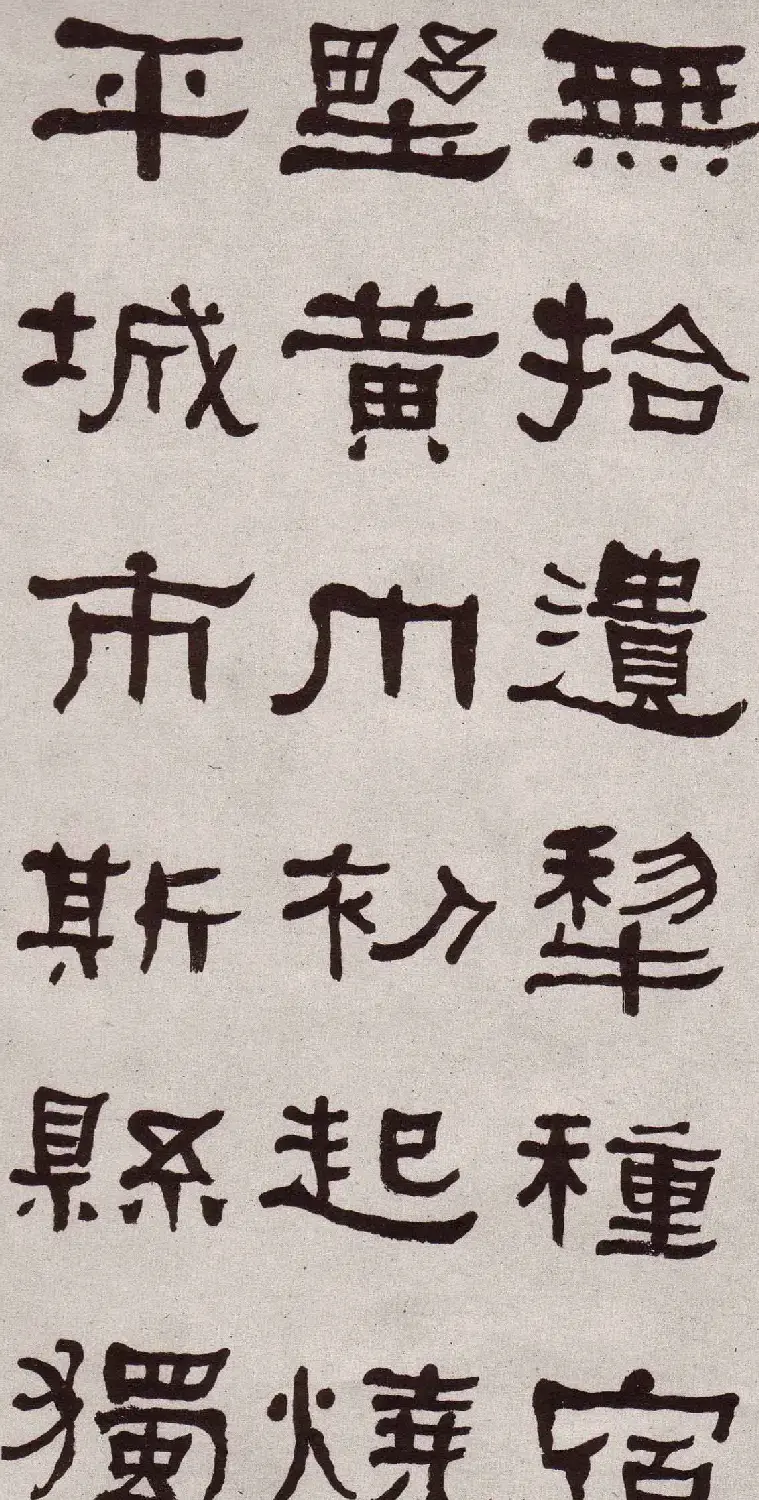 無拾遺犂種宿
墅黃巾初起燒
平城市斯縣獨